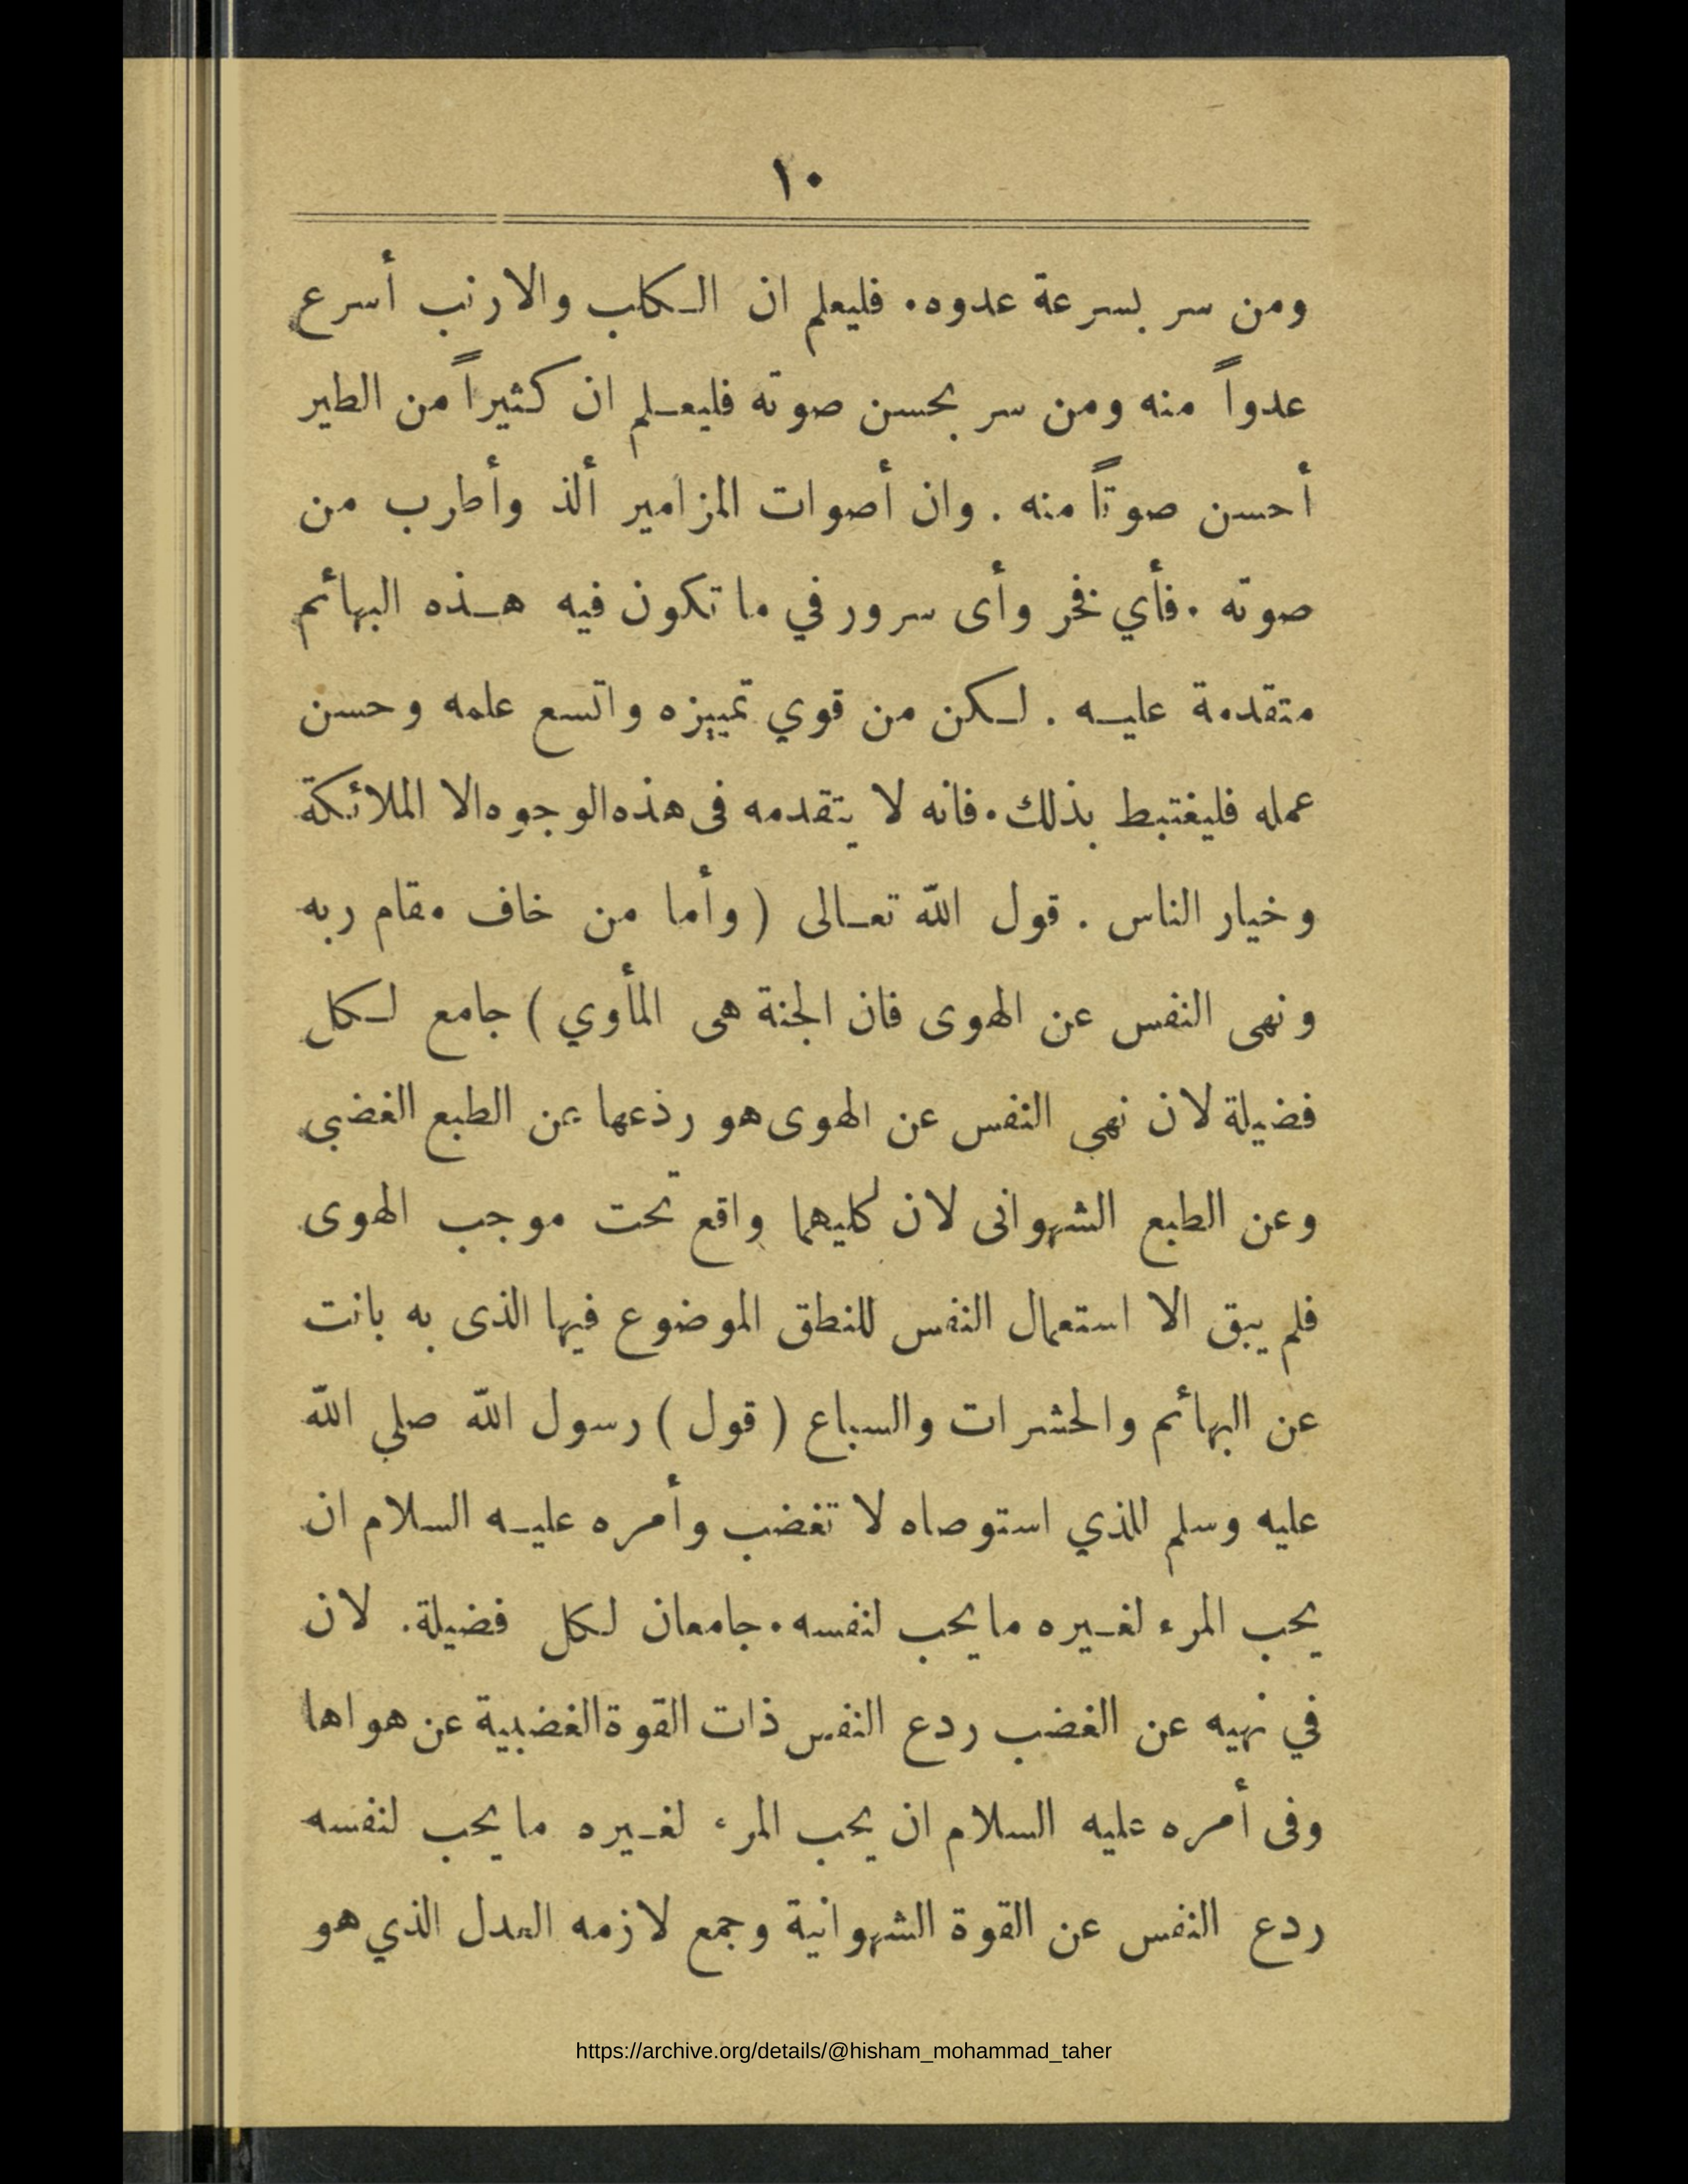 ١٠
ومن سر بسرعة عدوه. فليعلم ان الكلب والارنب أسرع
عدواً منه ومن سر بحسن صوته فليعلم ان كثيراً من الطير
أحسن صوتاً منه . وان أصوات المزامير ألذ وأطرب من
صوته . فأي فخر وأى سرور في ما تكون فيه هذه البهائم
متقدمة عليه . لكن من قوي تمييزه واتسع علمه وحسن
عمله فليغتبط بذلك. فانه لا يتقدمه فى هذه الوجوه الا الملائكة
وخيار الناس . قول الله تعالى ( وأما من خاف مقام ربه
ونهى النفس عن الهوى فان الجنة هى المأوي ) جامع لكل
فضيلة لان نهي النفس عن الهوى هو رذعها عن الطبع الغضبي
وعن الطبع الشهوانى لان كليهما واقع تحت موجب الهوى
فلم يبق الا استعمال النفس للنطق الموضوع فيها الذى به بانت
عن البهائم والحشرات والسباع ( قول ) رسول الله صلي الله
عليه وسلم للذي استوصاه لا تغضب وأمره عليه السلام ان
يحب المرء لغيره ما يحب لنفسه. جامعان لكل فضيلة. لان
في نهيه عن الغضب ردع النفس ذات القوة الغضبية عن هواها
وفى أمره عليه السلام ان يحب المرء لغيره ما يحب لنفسه
ردع النفس عن القوة الشهوانية وجمع لازمه العدل الذي هو
https://archive.org/details/@hisham_mohammad_taher